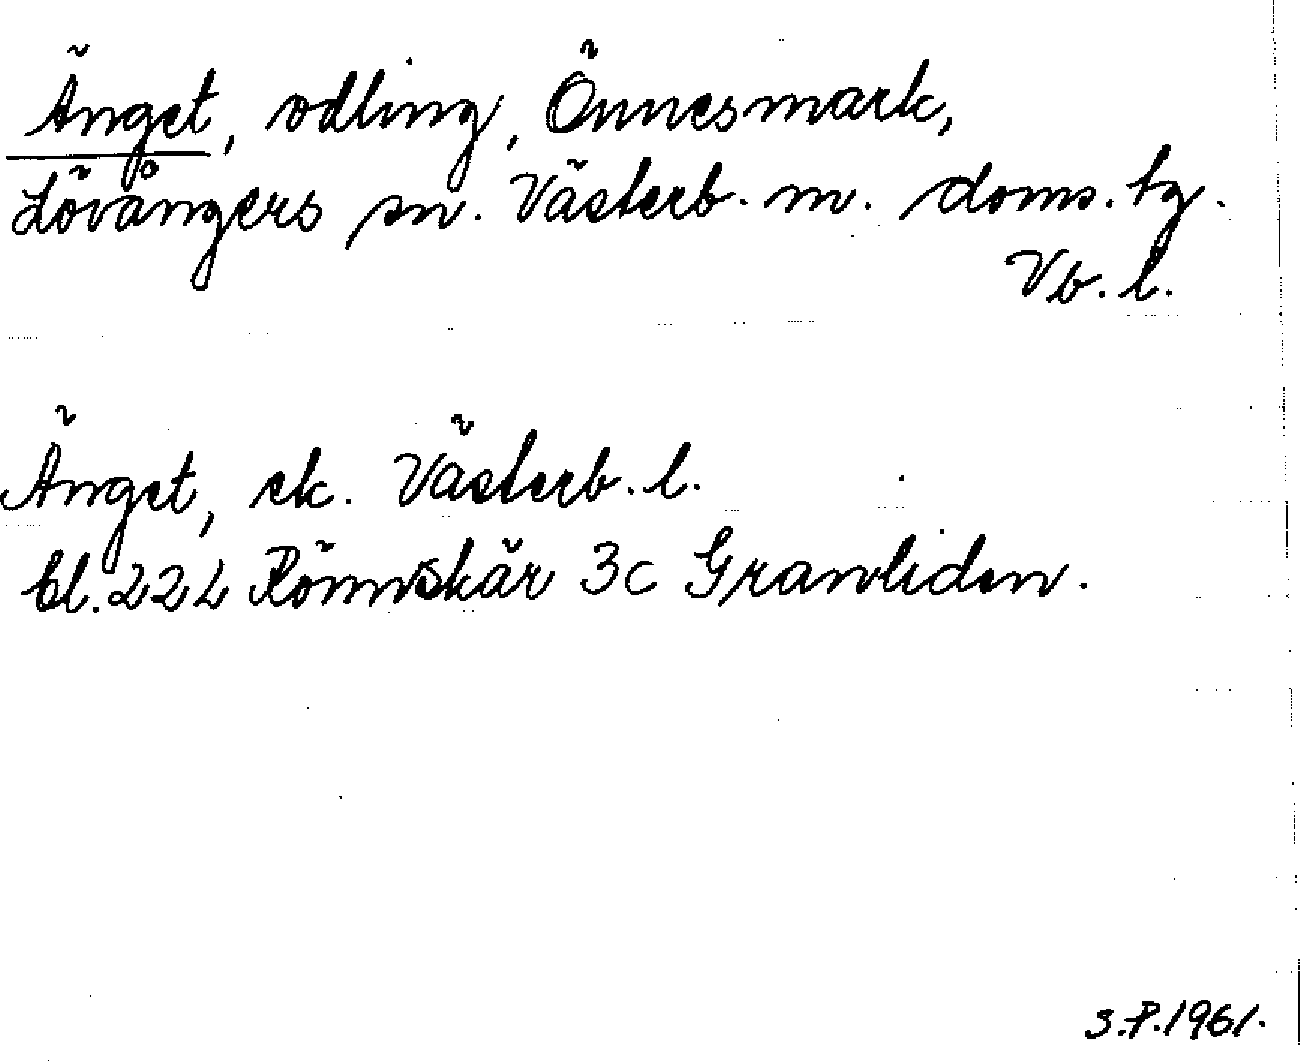 Änget, odling, Önnesmark,
Lövångers sn. Västerb. m. doms. tg.
Vb. l.
Änget, ek. Västerb. l.
bl. 22L Rönnskär 3c Granliden.
S.P. 1961.